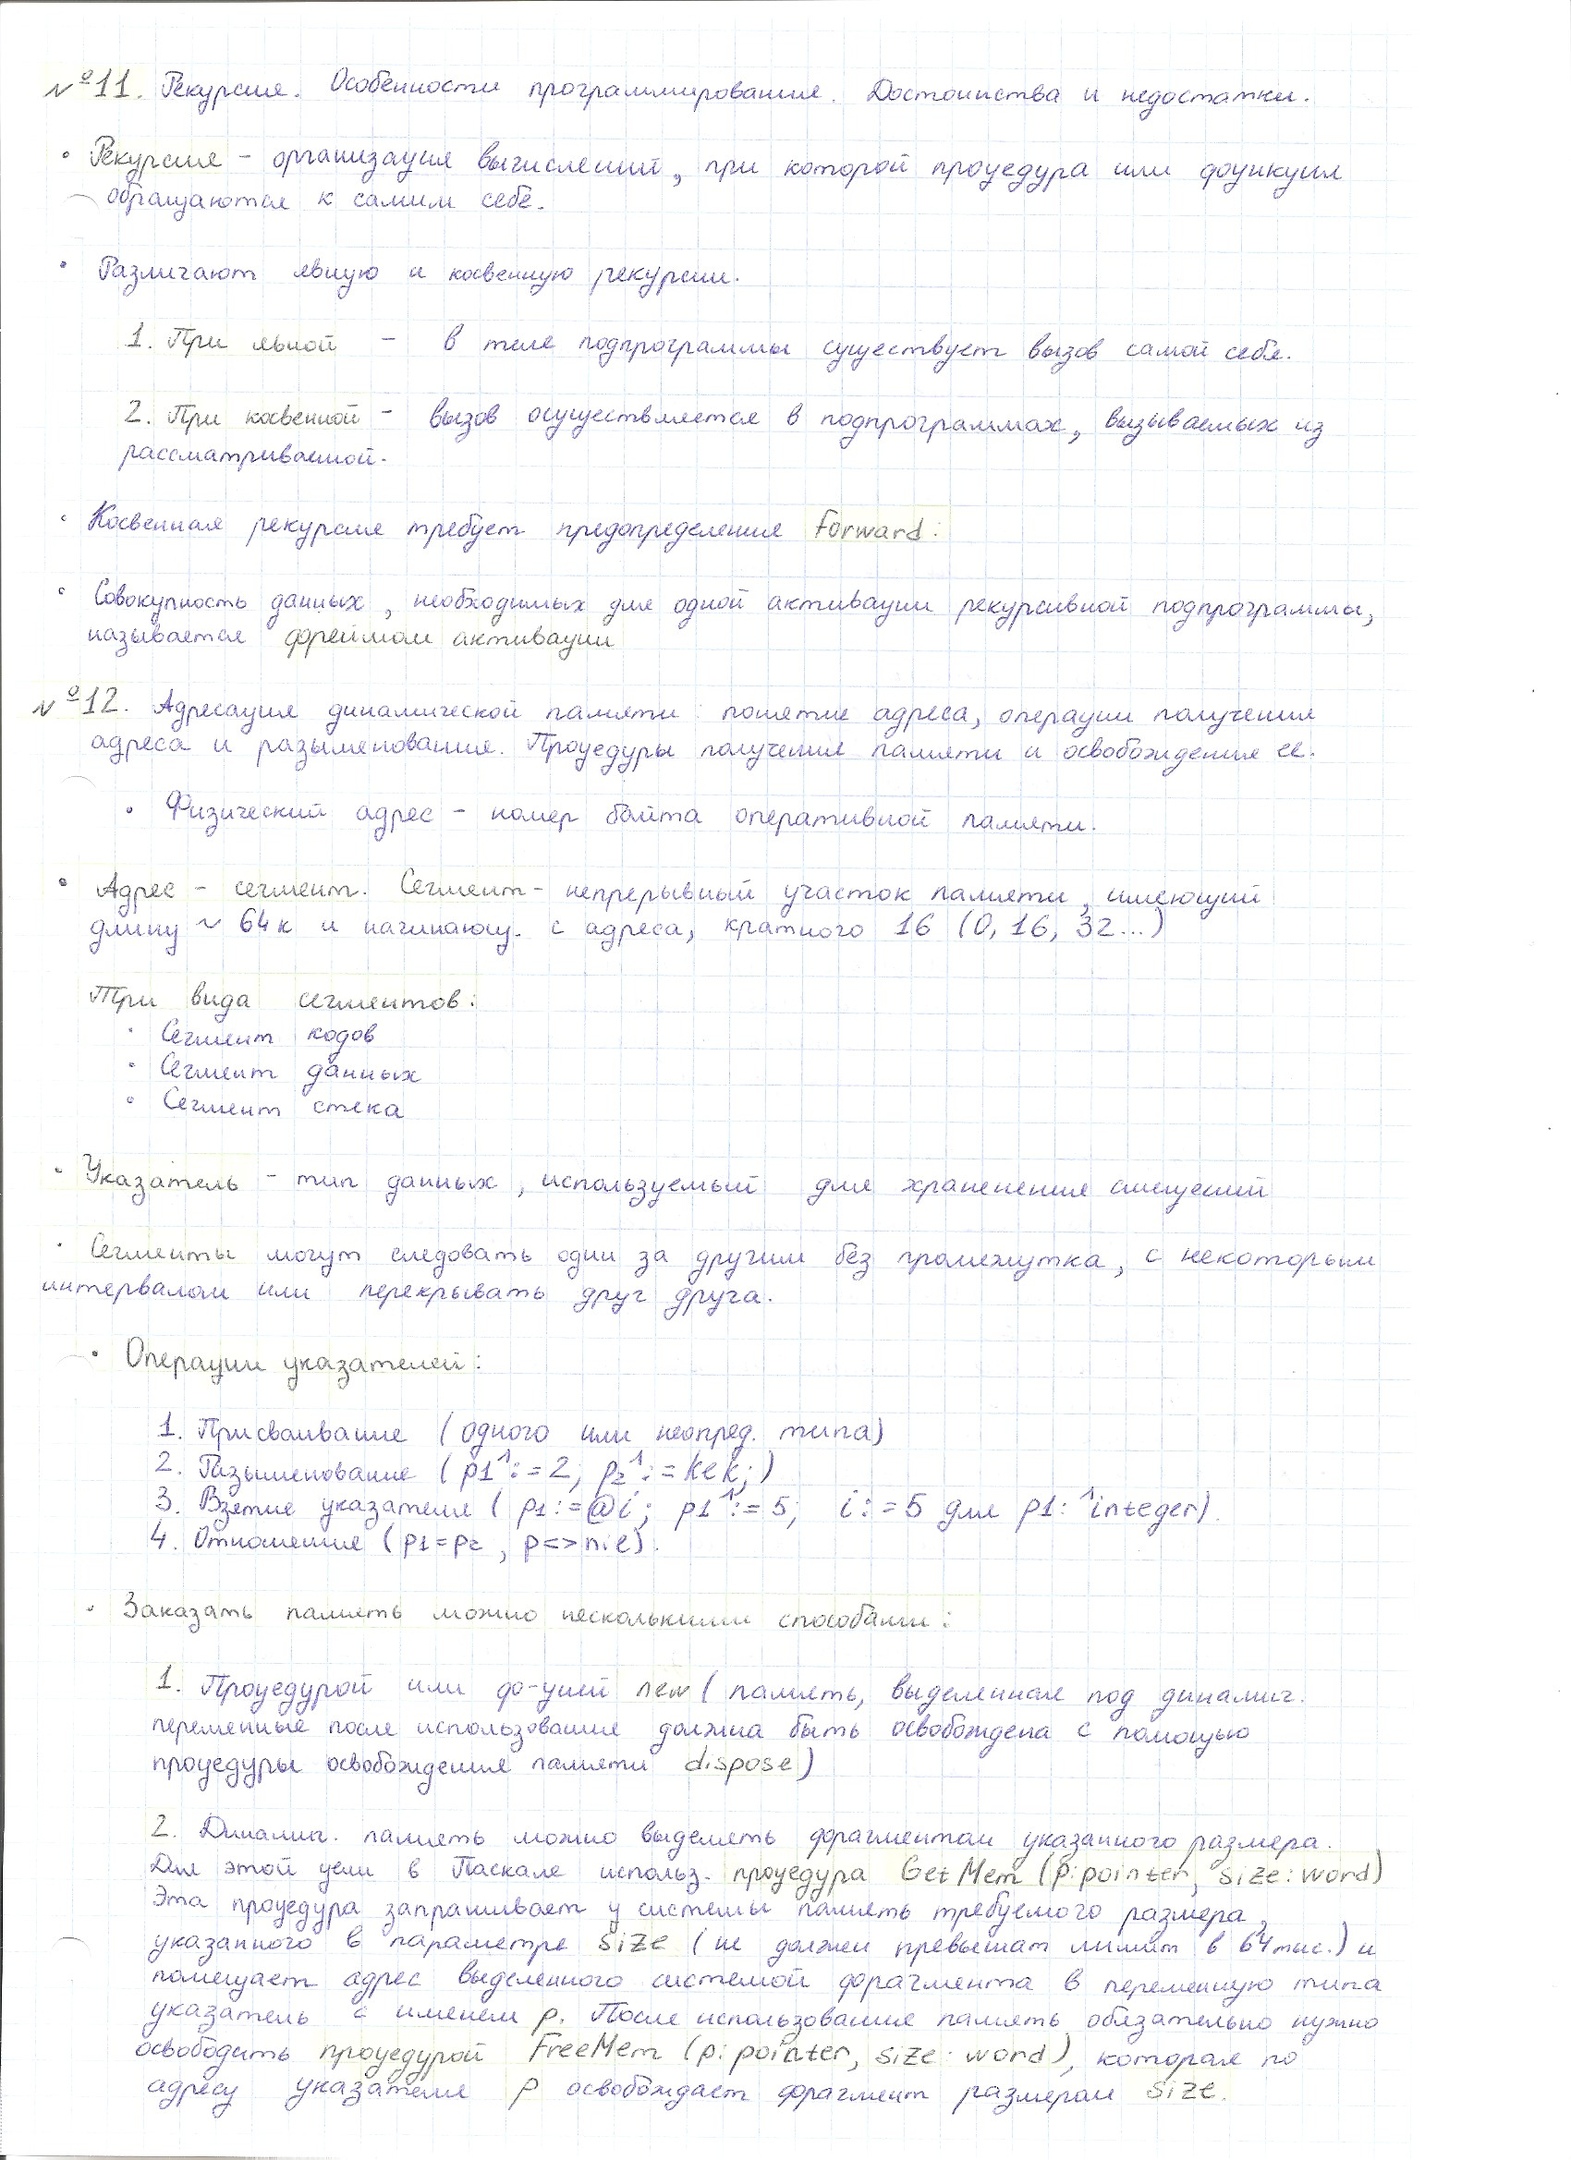 №11. Рекурсия. Особенности программирования. Достоинства и недостатки.
• Рекурсия - организация вычислений, при которой процедура или функция
обращаются к самим себе.
• Различают явную и косвенную рекурсии.
1. При явной - в теле подпрограммы существует вызов самой себя.
2. При косвенной - вызов осуществляется в подпрограммах, вызываемых из
рассматриваемой.
• Косвенная рекурсия требует предопределения forward.
• Совокупность данных, необходимых для одной активации рекурсивной подпрограммы,
называется фреймом активации
№12. Адресация динамической памяти: понятие адреса, операции получения
адреса и разыменования. Процедуры получения памяти и освобождения ее.
• Физический адрес - номер байта оперативной памяти.
• Адрес - сегмент. Сегмент - непрерывный участок памяти, имеющий
длину ~ 64к и начинающ. с адреса, кратного 16 (0, 16, 32...)
Три вида сегментов:
• Сегмент кодов
• Сегмент данных
• Сегмент стека
• Указатель - тип данных, используемый для храненения смещений
• Сегменты могут следовать один за другим без промежутка, с некоторым
интервалом или перекрывать друг друга.
• Операции указателей:
1. Присваивание (одного или неопред. типа)
2. Разыменование (p1^:=2; p2^:=kek;)
3. Взятие указателя (p1:=@i; p1^:=5; i:=5 для p1: ^integer).
4. Отношения (p1=p2, p<>nil).
• Заказать память можно несколькими способами:
1. Процедурой или ф-цией new (память, выделенная под динамич.
переменные после использования должна быть освобождена с помощью
процедуры освобождения памяти dispose)
2. Динамич. память можно выделять фрагментам указанного размера.
Для этой цели в Паскале использ. процедура GetMem (p: pointer, size: word)
Эта процедура запрашивает у системы память требуемого размера,
указанного в параметре size (не должен превышат лимит в 64тыс.) и
помещает адрес выделенного системой фрагмента в переменную типа
указатель с именем p. После использования память обязательно нужно
освободить процедурой FreeMem (p: pointer, size: word), которая по
адресу указателя p освобождает фрагмент размером size.